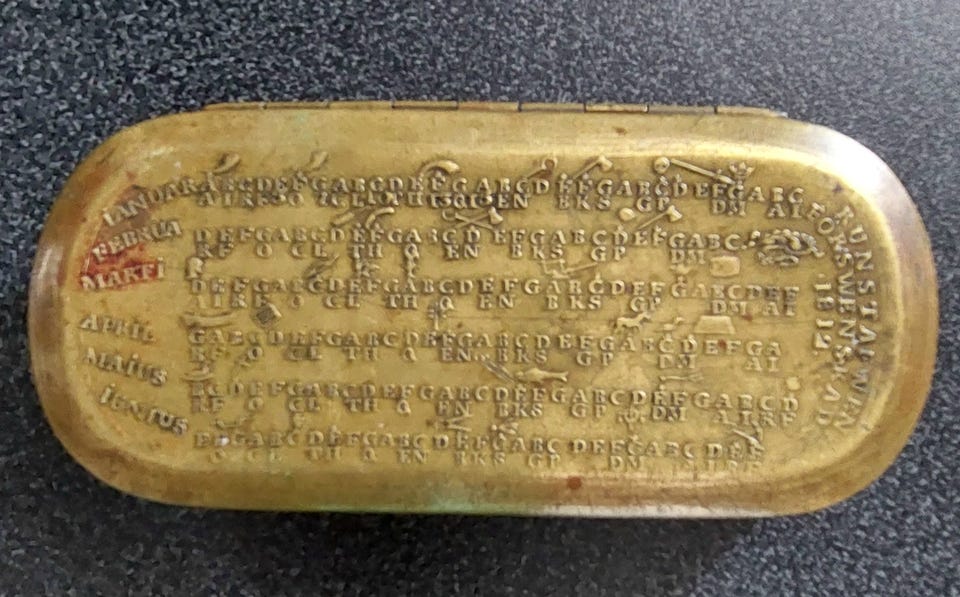 IANUAR ABCDEFGABCDEFGABCDEFGABCDEFGABC
O CL EN BKS GP DM AI
FEBRUA DEFGABCDEFGABCDEFGABCDEFGABC
RF O CL TH Q EN BKS GP DM
MARTI DEFGABCDEFGABCDEFGABCDEFGABCDEF
AIRF O CL TH Q EN BKS GP DM AI
APRIL GABCDEFGABCDEFGABCDEFGABCDEFGA
RF O CL TH Q EN BKS GP DM AI
MAIUS BCDEFGABCDEFGABCDEFGABCDEFGABCD
RF O CL TH Q EN BKS GP DM AIRF
IUNIUS EFGABCDEFGABCDEFGABCDEFGABCDEF
O CL TH Q EN BKS GP DM
RUNSTAFWEN
FÖRSWENSKAD
1812.